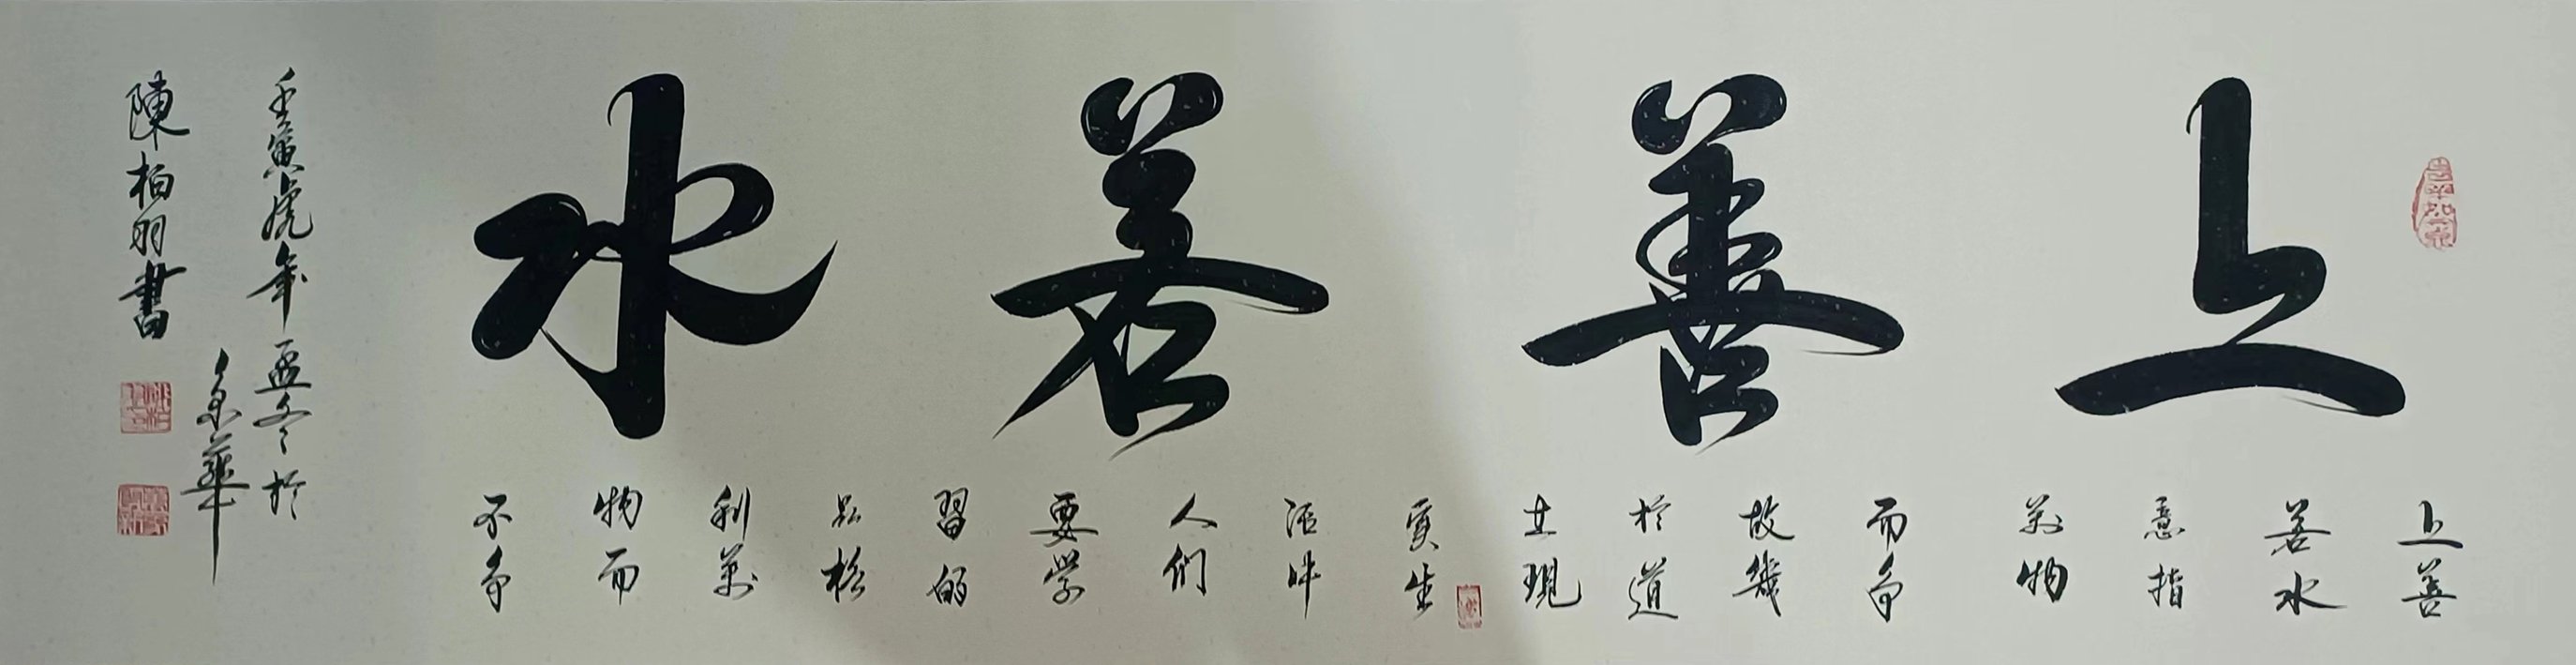 上善若水
上善
若水
意指
萬物
而争
故幾
於道
在現
實生
活中
人们
要学
習的
品格
利萬
物而
不争
壬寅虎年孟冬於
京華
陳柏羽書